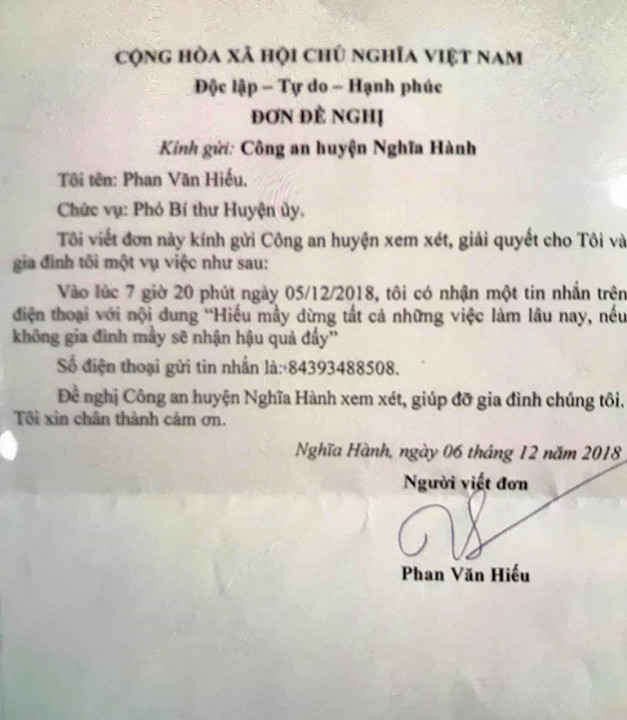 CỘNG HÒA XÃ HỘI CHỦ NGHĨA VIỆT NAM
Độc lập – Tự do – Hạnh phúc
ĐƠN ĐỀ NGHỊ
Kính gửi: Công an huyện Nghĩa Hành
Tôi tên: Phan Văn Hiếu.
Chức vụ: Phó Bí thư Huyện ủy.
Tôi viết đơn này kính gửi Công an huyện xem xét, giải quyết cho Tôi và
gia đình tôi một vụ việc như sau:
Vào lúc 7 giờ 20 phút ngày 05/12/2018, tôi có nhận một tin nhắn trên
điện thoại với nội dung “Hiếu mầy dừng tất cả những việc làm lâu nay, nếu
không gia đình mầy sẽ nhận hậu quả đấy”
Số điện thoại gửi tin nhắn là:+84393488508.
Đề nghị Công an huyện Nghĩa Hành xem xét, giúp đỡ gia đình chúng tôi.
Tôi xin chân thành cảm ơn.
Nghĩa Hành, ngày 06 tháng 12 năm 2018
Người viết đơn
Phan Văn Hiếu